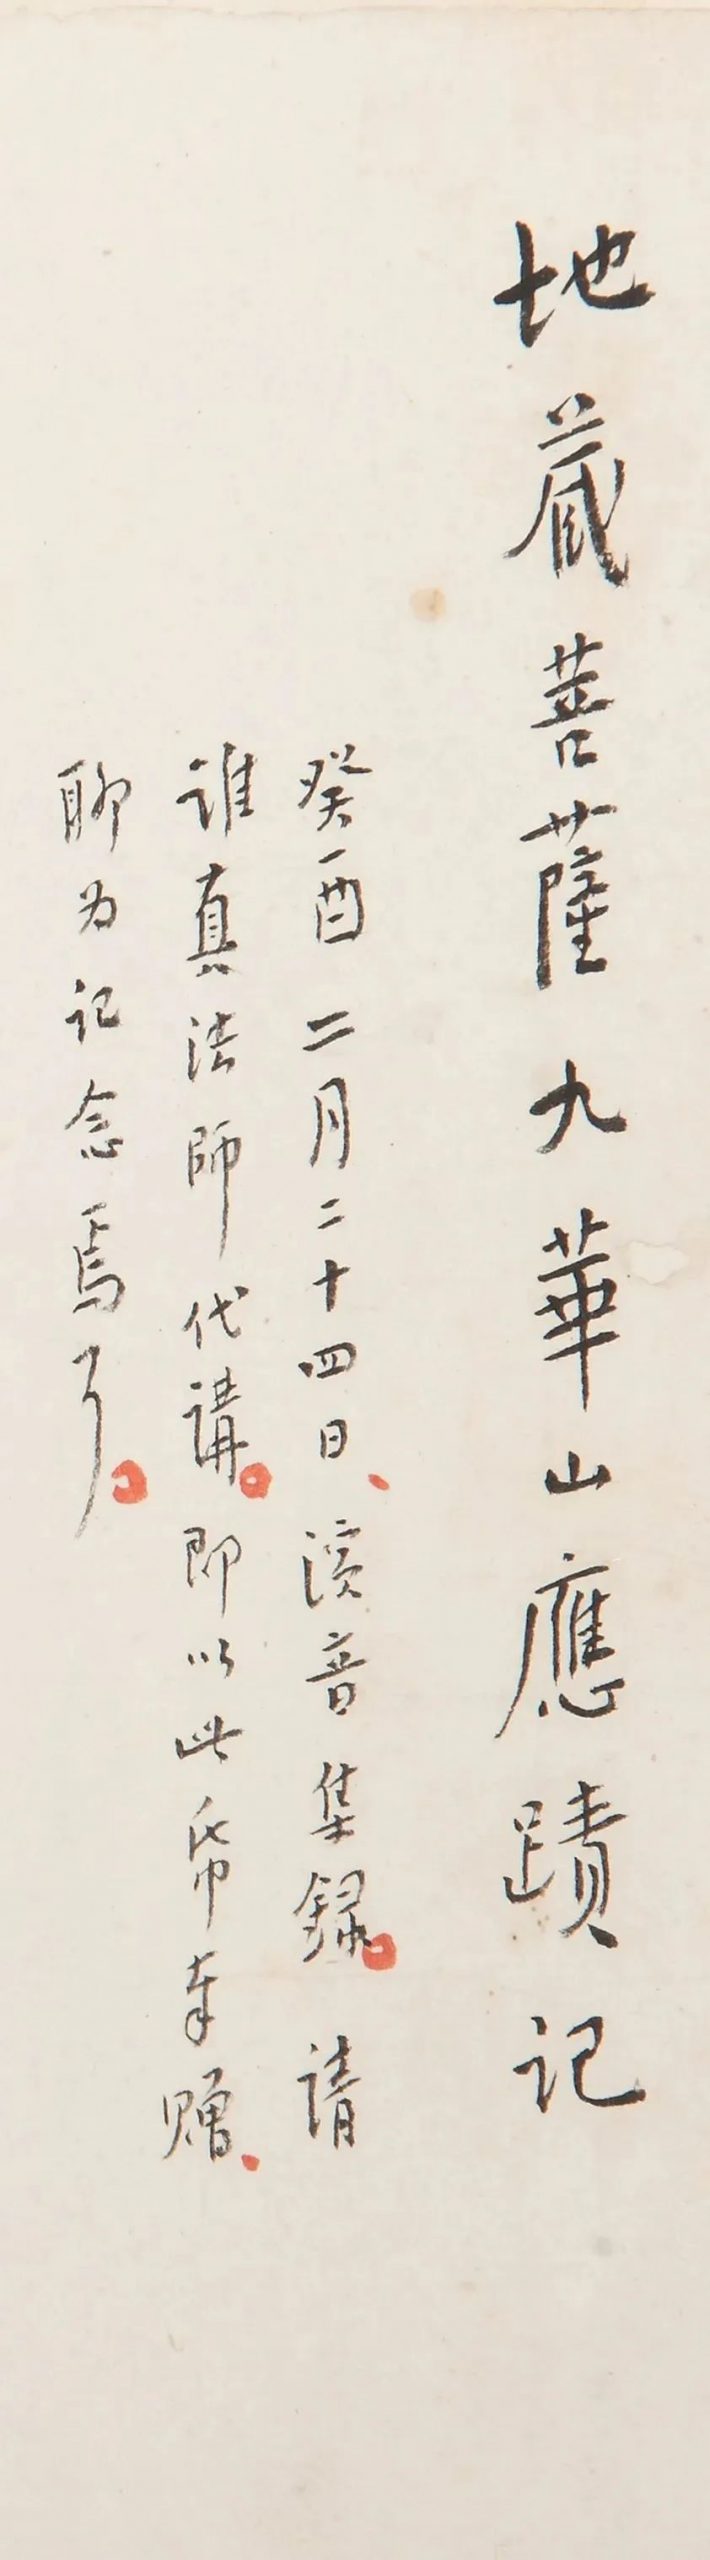 地藏菩薩九華山應蹟記
癸酉二月二十四日、演音集錄。請
誰真法師代講。即以此帋奉贈、
聊为記念焉耳。